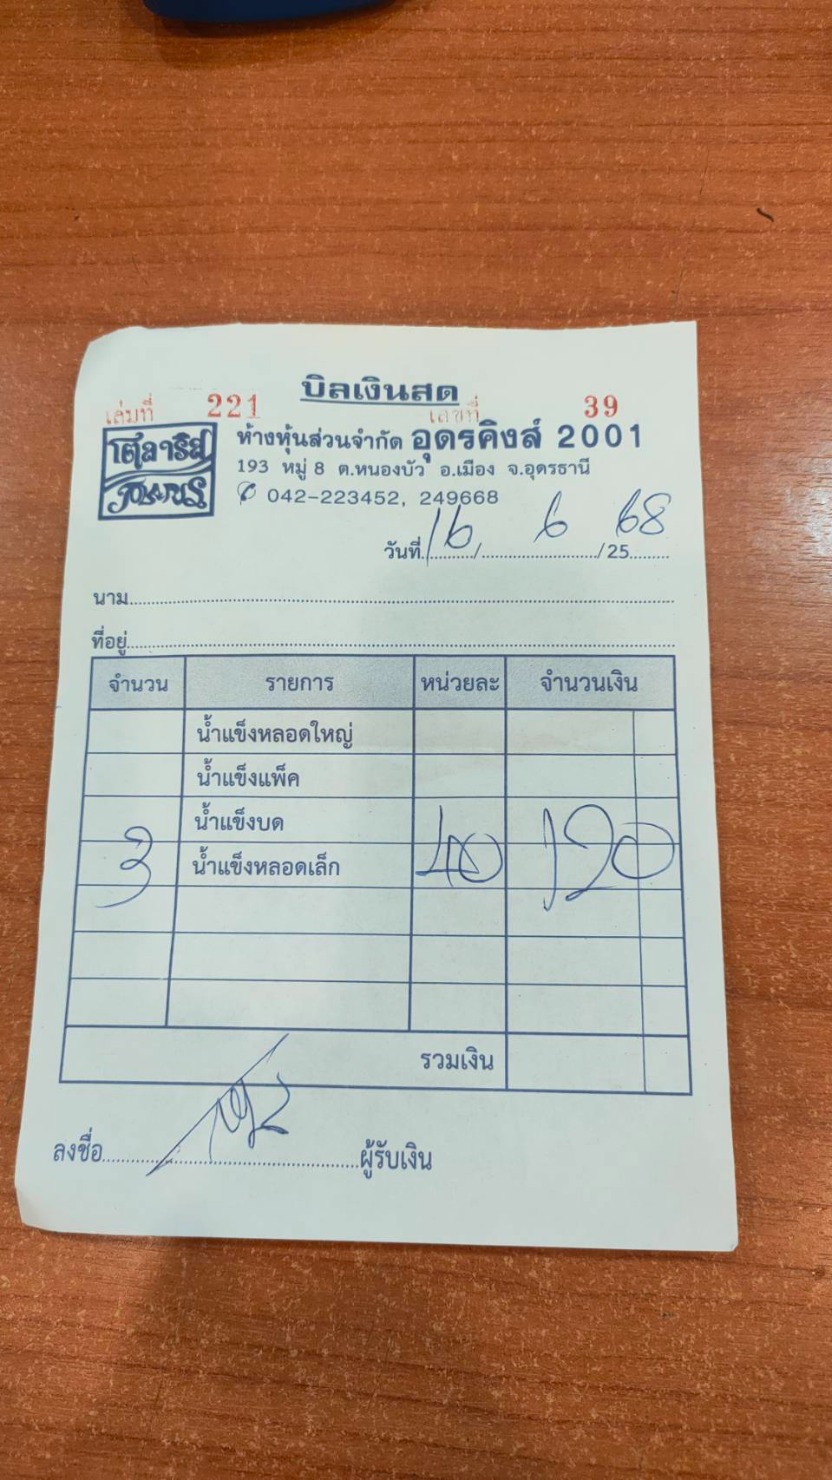 บิลเงินสด
เล่มที่ 221 เลขที่ 39
ห้างหุ้นส่วนจำกัด อุดรคิงส์ 2001
193 หมู่ 8 ต.หนองบัว อ.เมือง จ.อุดรธานี
✆ 042-223452, 249668
วันที่ 16 / 6 / 25 68
นาม
ที่อยู่
จำนวน รายการ หน่วยละ จำนวนเงิน
น้ำแข็งหลอดใหญ่
น้ำแข็งแพ็ค
น้ำแข็งบด
3 น้ำแข็งหลอดเล็ก 40 120
รวมเงิน
ลงชื่อ ผู้รับเงิน